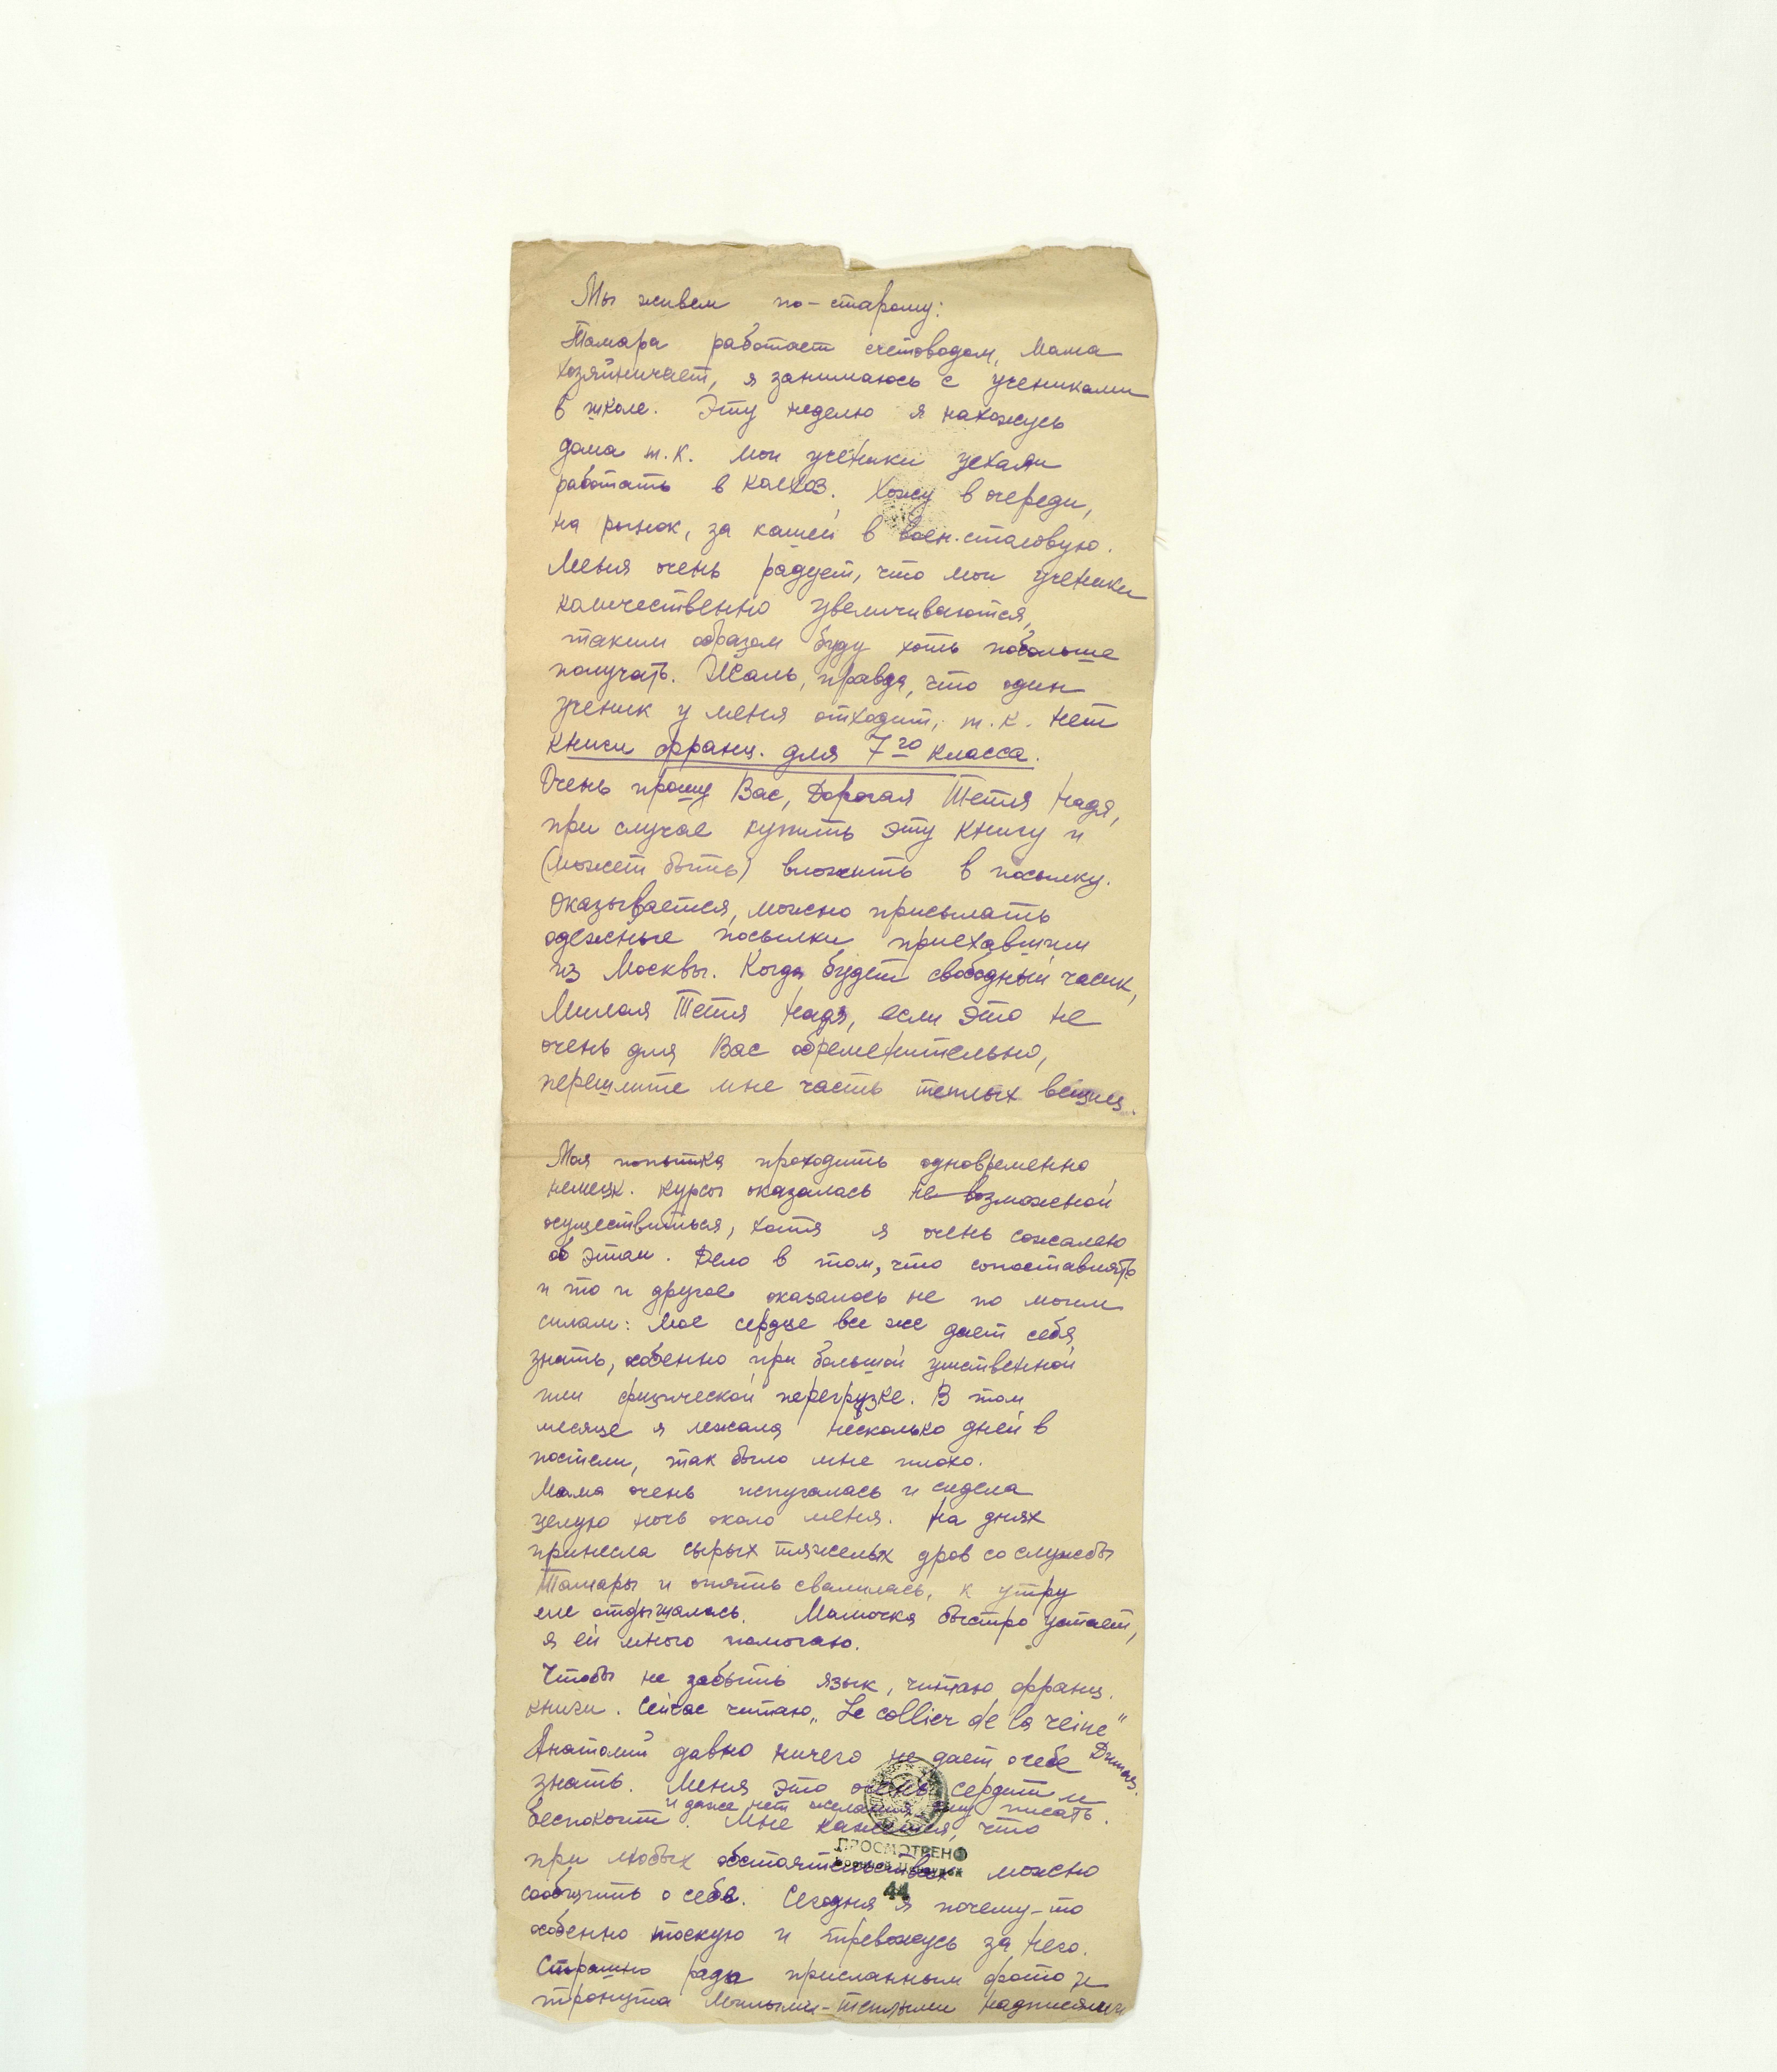 Мы живем по-старому:
Тамара работает счетоводом, Мама
хозяйничает, я занимаюсь с учениками
в школе. Эту неделю я нахожусь
дома т.к. мои ученики уехали
работать в колхоз. Хожу в очереди,
на рынок, за кашей в воен. столовую.
Меня очень радует, что мои ученики
количественно увеличиваются,
таким образом буду хоть побольше
получать. Жаль, правда, что один
ученик у меня отходит, т.к. нет
книги франц. для 7го класса.
Очень прошу Вас, Дорогая Тетя Надя,
при случае купить эту книгу и
(может быть) вложить в посылку.
Оказывается, можно присылать
одежные посылки приехавшим
из Москвы. Когда будет свободный часик,
Милая Тетя Надя, если это не
очень для Вас обременительно,
перешлите мне часть теплых вещиц.
Моя попытка проходить одновременно
немецк. курсы оказалась невозможной
осуществиться, хотя я очень сожалею
об этом. Дело в том, что сопоставлять
и то и другое оказалось не по моим
силам: Мое сердце все же дает себя
знать, особенно при большой умственной
или физической перегрузке. В том
месяце я лежала несколько дней в
постели, так было мне плохо.
Мама очень испугалась и сидела
целую ночь около меня. На днях
принесла сырых тяжелых дров со службы
Тамары и опять свалилась, к утру
еле отдышалась. Мамочка быстро устает,
я ей много помогаю.
Чтобы не забыть язык, читаю франц.
книги. Сейчас читаю „Le collier de la reine"
Дюма.
Анатолий давно ничего не дает о себе
знать. Меня это очень сердит и
беспокоит и даже нет желания ему писать.
Мне кажется, что
при любых обстоятельствах можно
ПРОСМОТРЕНО
Военной Цензурой
44
сообщить о себе. Сегодня я почему-то
особенно тоскую и тревожусь за него.
Страшно рада присланным фото и
тронута милыми-теплыми надписями